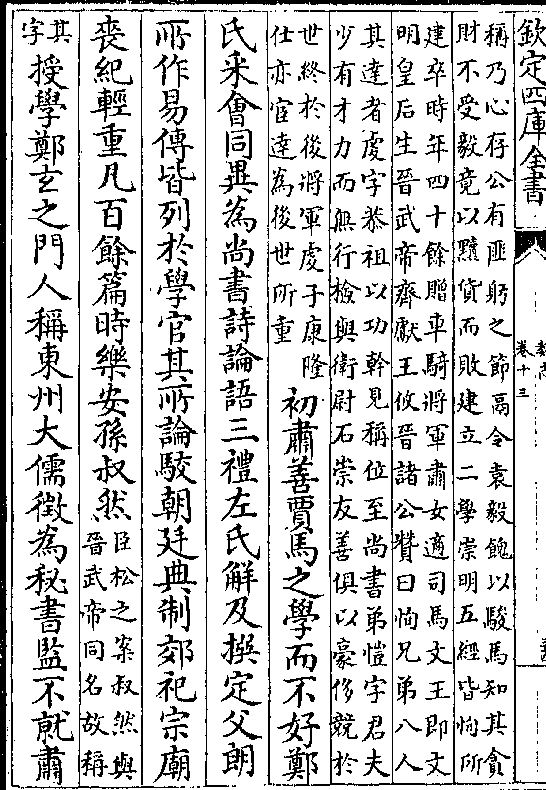 欽定四庫全書
卷十三
稱乃心存公有匪躬之節鬲令袁毅餽以駿馬知其貪
財不受毅竟以黷貨而敗建立二學崇明五經皆恂所
建卒時年四十餘贈車騎將軍肅女適司馬文王即文
明皇后生晉武帝齊獻王攸晉諸公贊曰恂兄弟八人
其達者虔字恭祖以功幹見稱位至尚書弟愷字君夫
少有才力而無行檢與衛尉石崇友善俱以豪侈競於
世終於後將軍虔子康隆
仕亦宦達為後世所重
初肅善賈馬之學而不好鄭
氏采會同異為尚書詩論語三禮左氏解及撰定父朗
所作易傳皆列於學官其所論駮朝廷典制郊祀宗廟
喪紀輕重凡百餘篇時樂安孫叔然
臣松之案叔然與
晉武帝同名故稱
其
字
授學鄭玄之門人稱東州大儒徵為秘書監不就肅